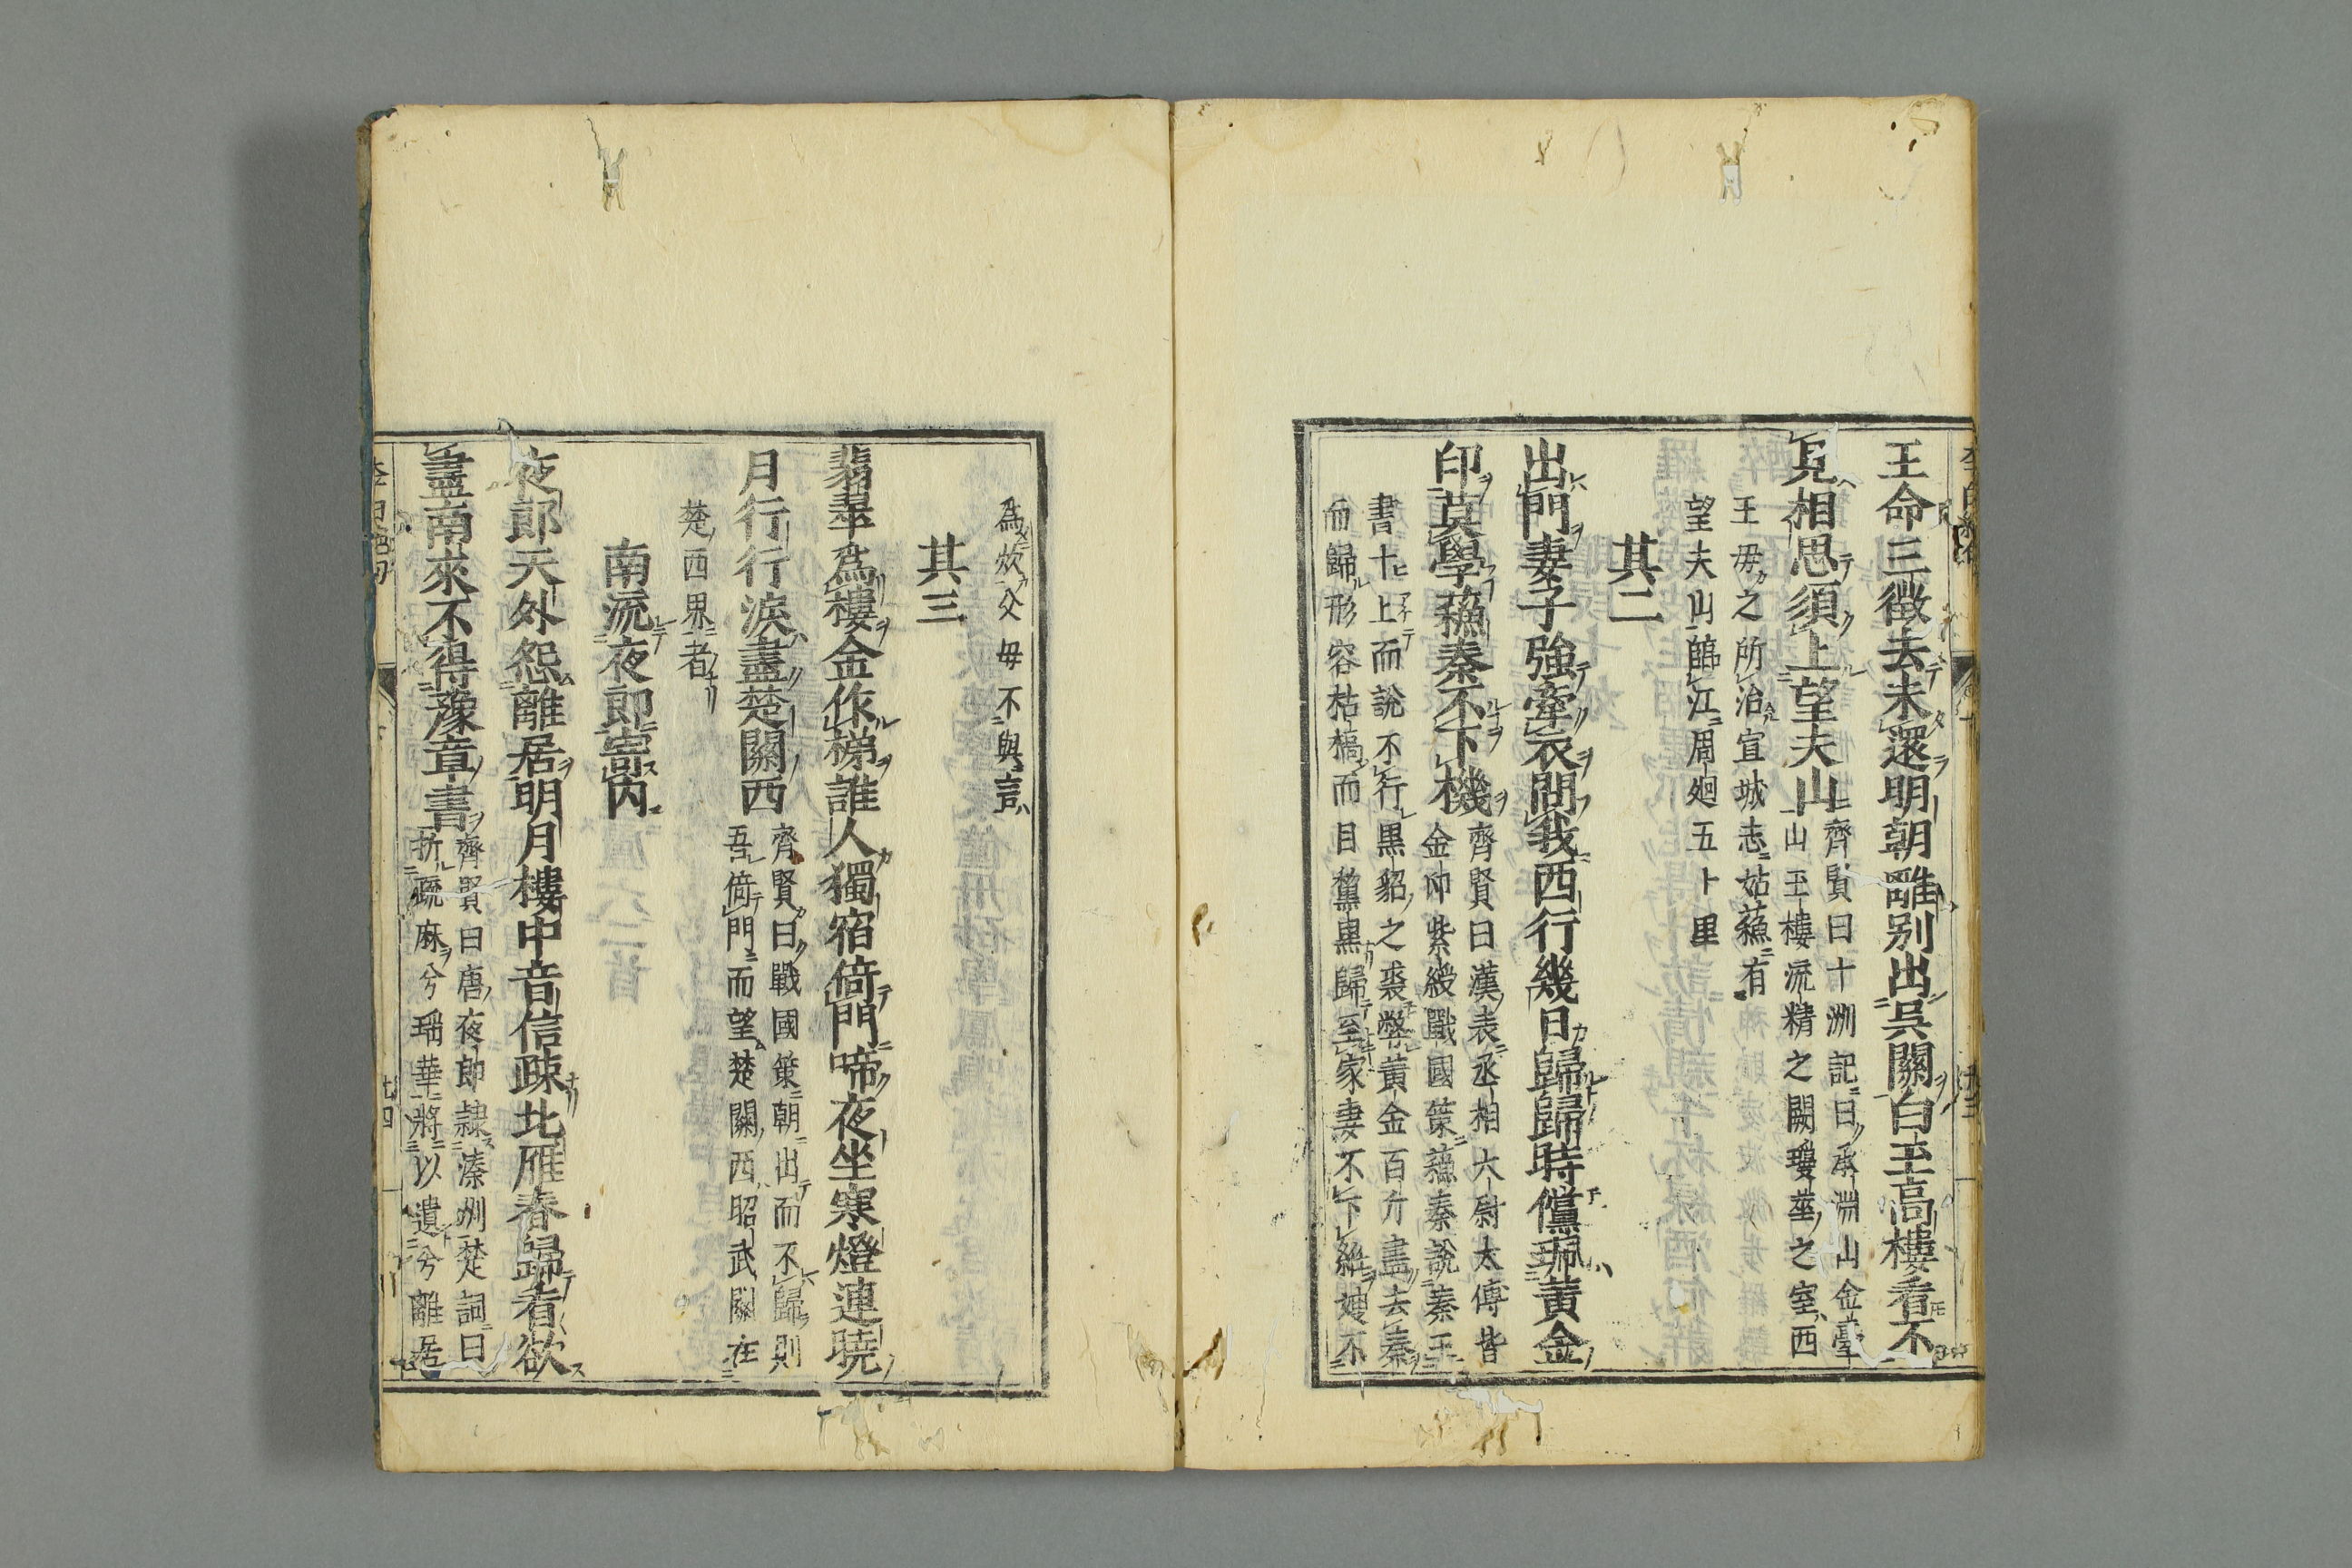 王命三徴去未還明朝離別出呉關白玉高樓看不
見相思須上望夫山
齊賢曰十洲記曰承淵山金臺
山玉樓流精之闕瓊華之室西
王毋之所治宣城志姑蘓有
望夫山臨江周廻五十里
其二
出門妻子強牽衣問我西行幾日歸歸時儻珮黄金
印莫學蘓秦不下機
齊賢曰漢表丞相大尉太傅皆
金印紫綬戰國策蘓秦說秦王
書十上而說不行黒貂之裘弊黄金百斤盡去秦
而歸形容枯槁而目黧黒歸至家妻不下絍嫂不
為炊父毋不與言
其三
翡翠爲樓金作梯誰人獨宿倚門啼夜坐寒燈連曉
月行行淚盡楚關西
齊賢曰戰國策朝出而不歸則
吾倚門而望楚關西昭武關在
楚西界者
南流夜郎寄内
夜郎天外怨離居明月樓中音信疎北雁春歸看欲
盡南來不得豫章書
齊賢曰唐夜郎隷溱洲楚詞曰
折疏麻兮瑶華將以遺兮離居